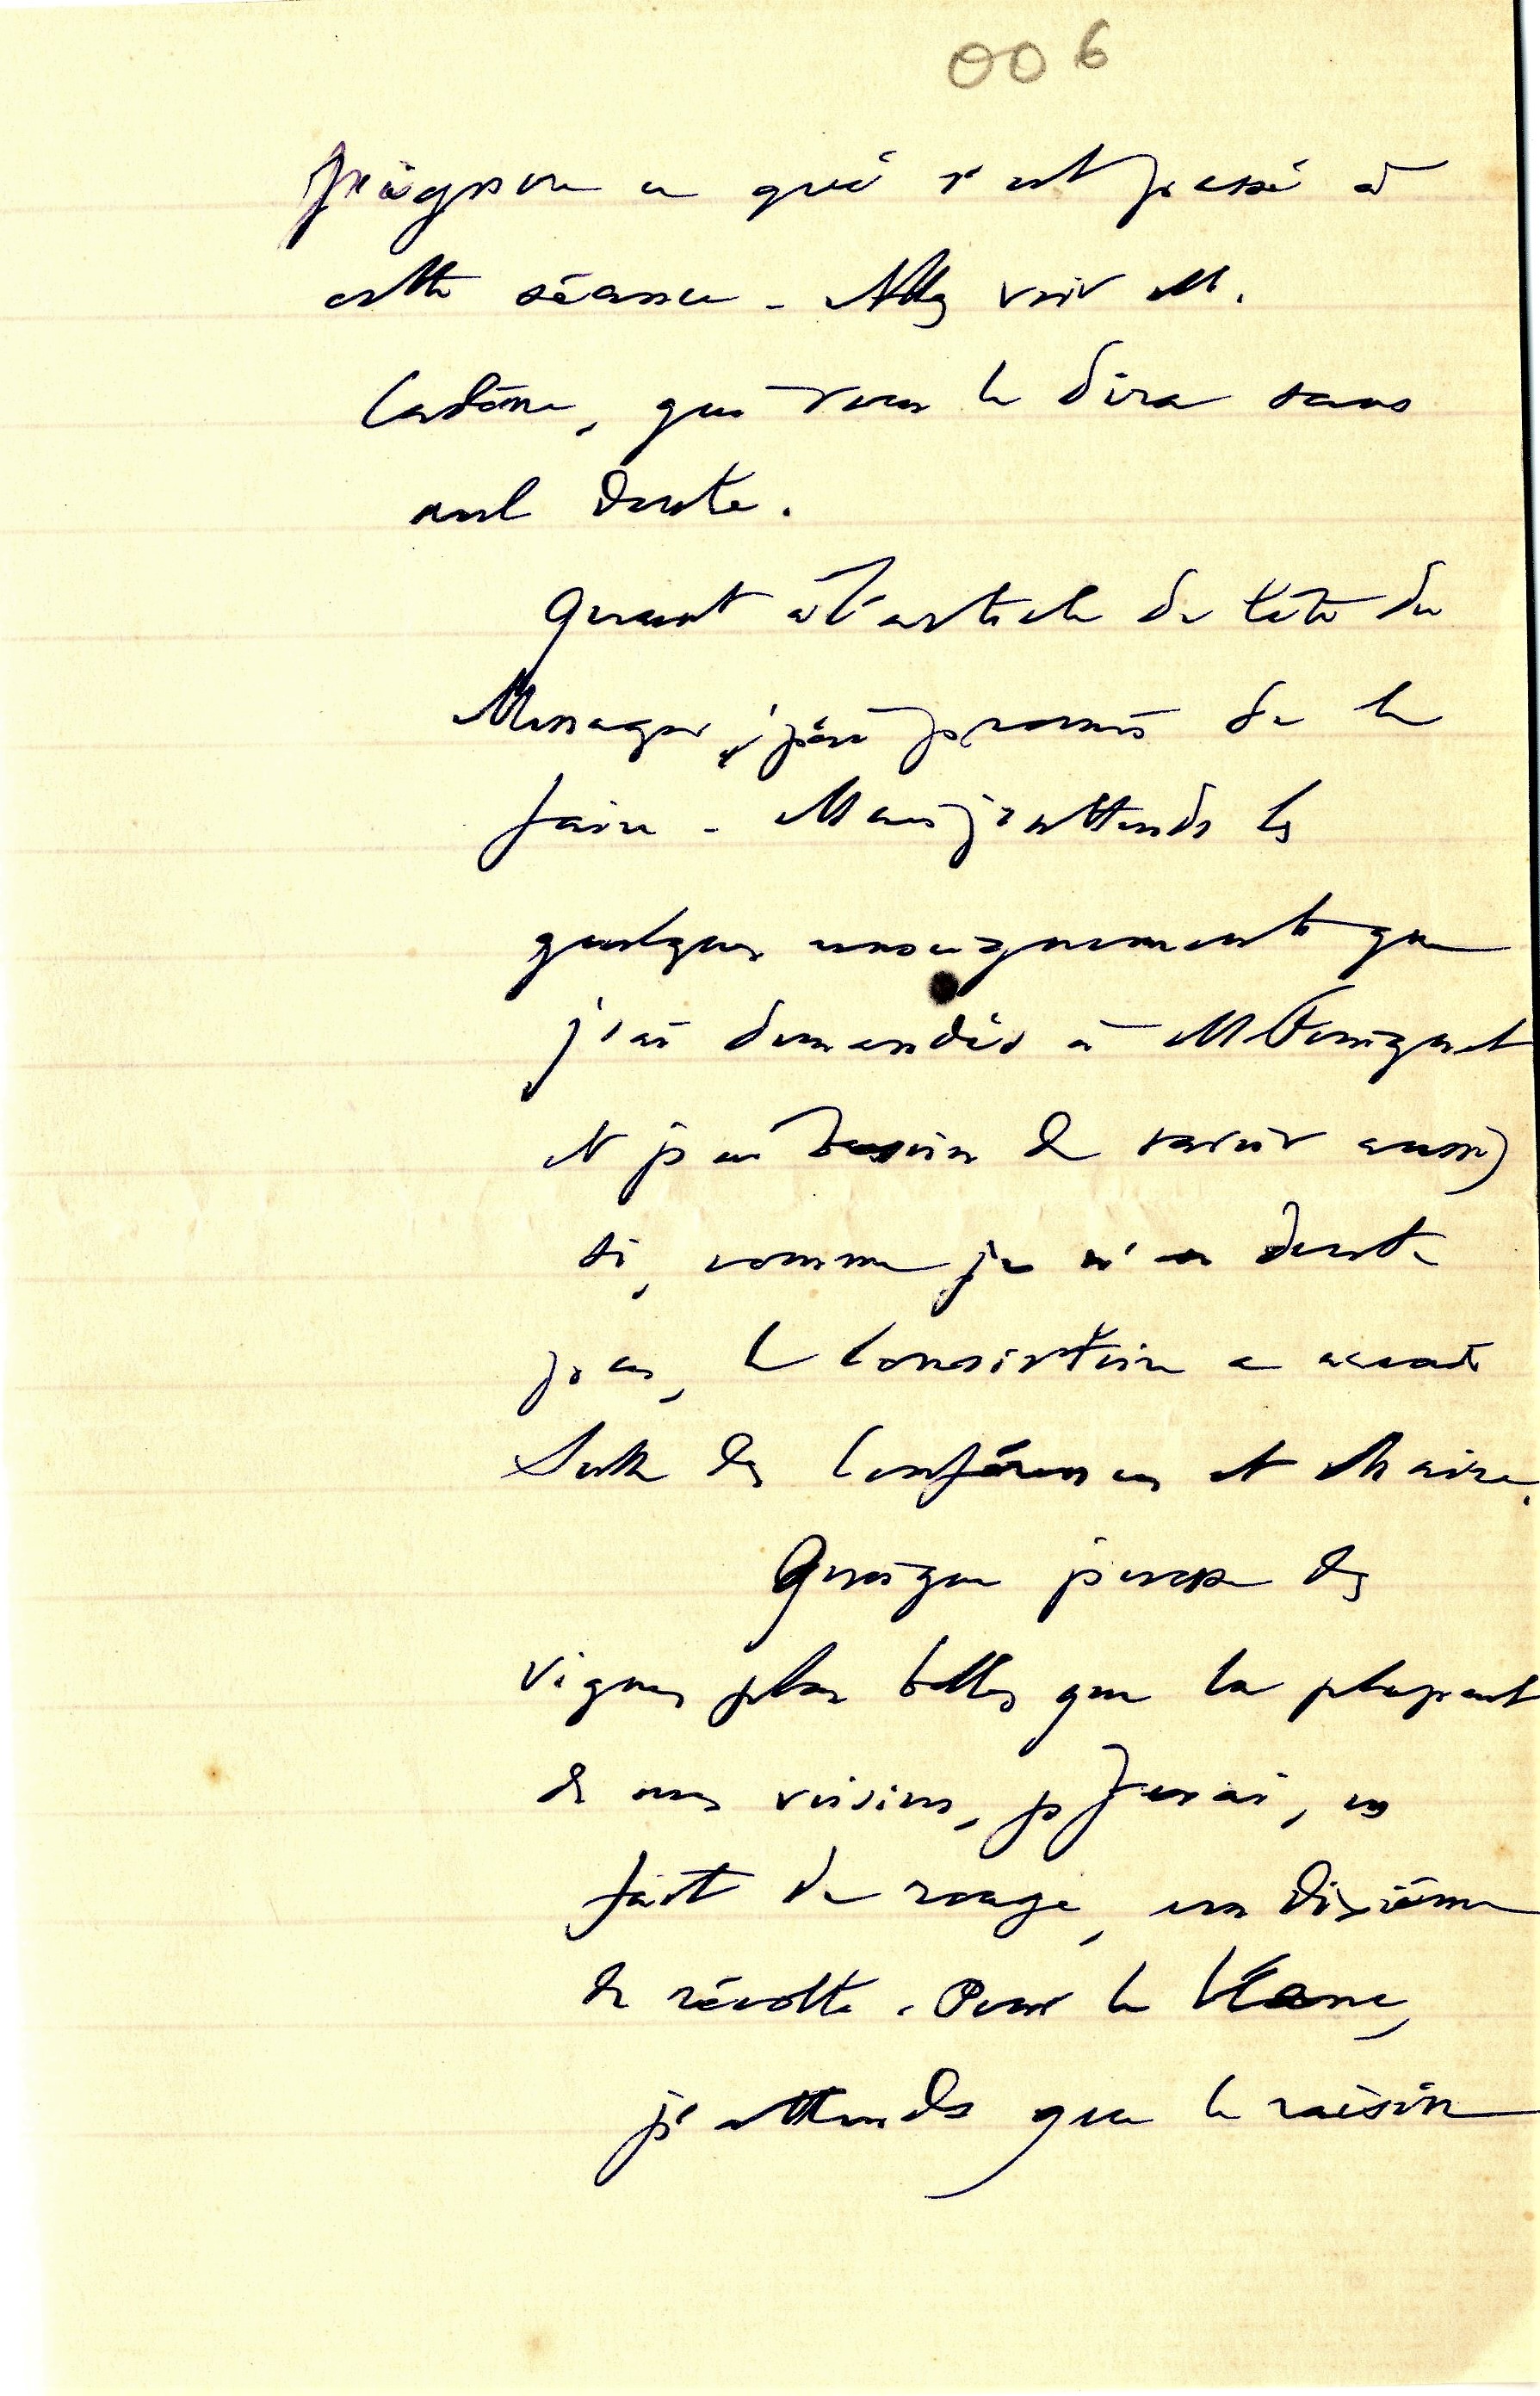 006
j'ignore ce qui s'est passé à
cette séance - Allez voir M.
Cadène, qui vous le dira sans
nul doute.
Quant à l'article de tête du
Messager, j'ai promis de le
faire - Mais j'attends les
quelques renseignements que
j'ai demandés à M
et j'ai besoin de savoir aussi
si, comme je n'en doute
pas, le Consistoire a accordé
Salle des Conférences et Chaire.
Quoique j'eusse des
vignes plus belles que la plupart
de mes voisins, je ferai, en
fait de rouge, un dixième
de récolte. Pour le blanc,
j'attends que le raisin